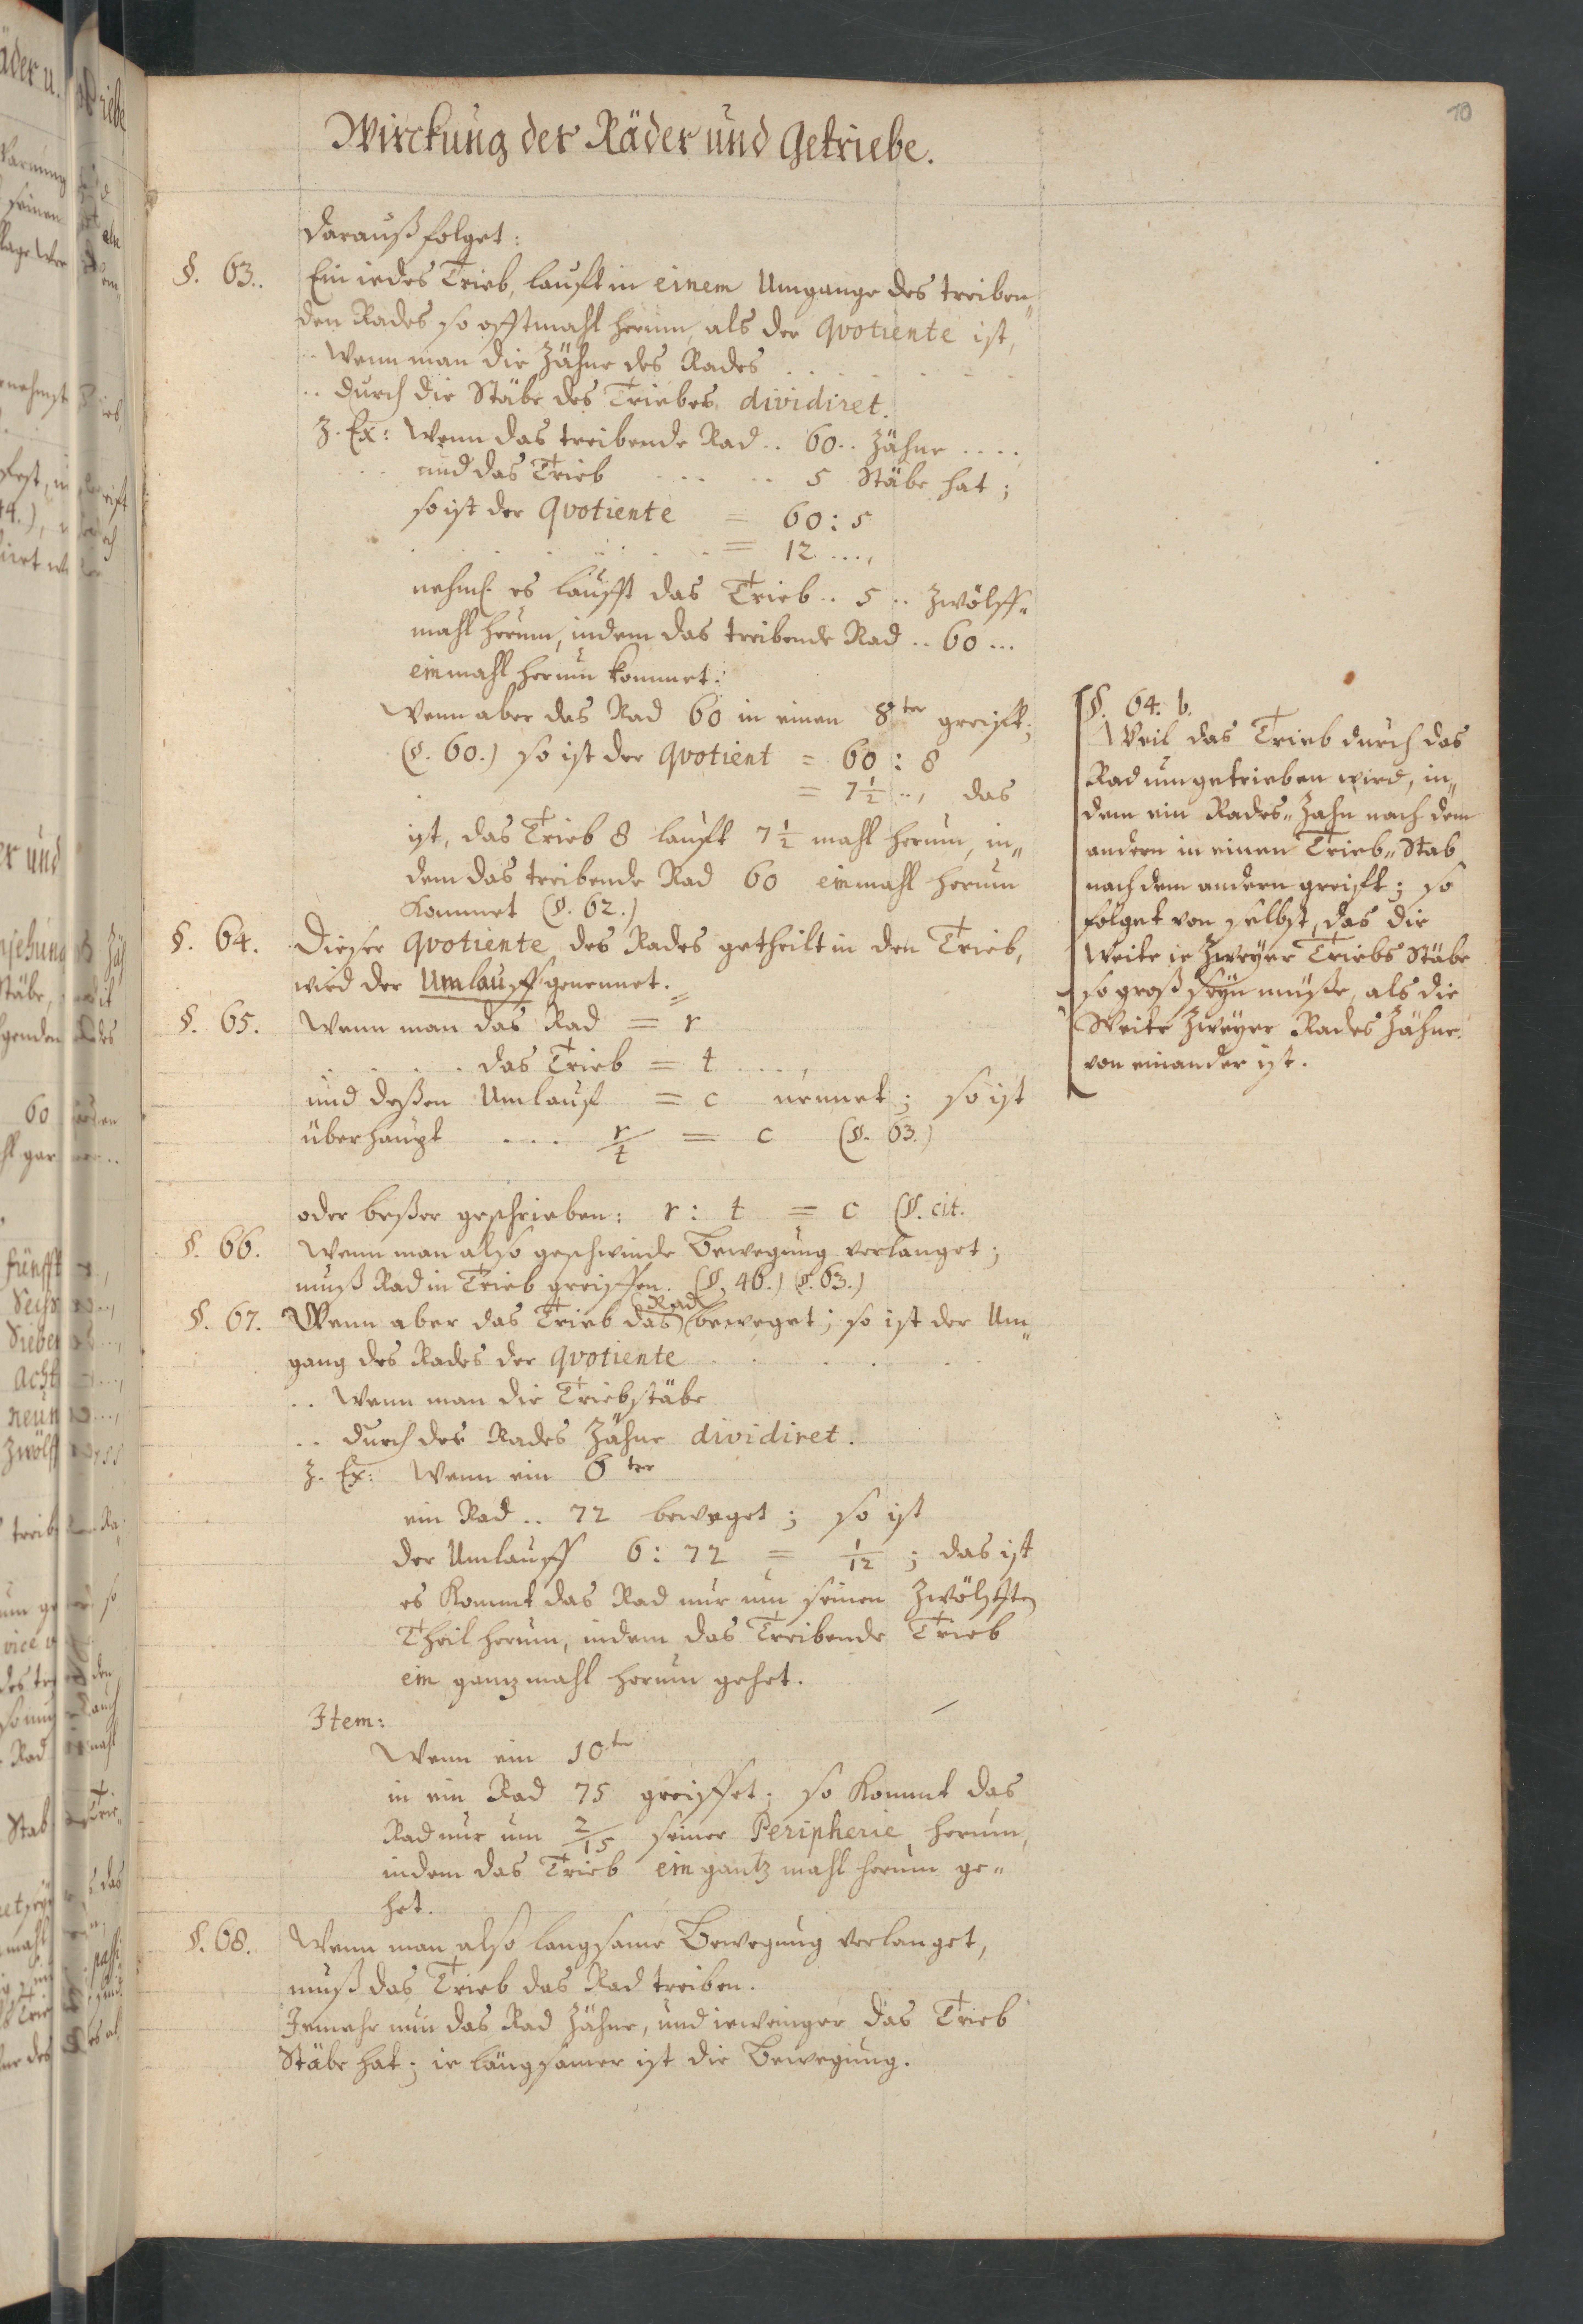 10
Wirckung der Räder und Getriebe.
darauß folget:
§. 63. Ein iedes Trieb, laufft in einem Umgange des treiben„
den Rades so offtmahl herum, als der Qvotiente ist,
.. Wenn man die Zähne des Rades . . . . . .
.. durch die Stäbe des Triebes, dividiret.
Z. Ex: Wenn das treibende Rad .. 60 .. Zähne ....
und das Trieb . . . . . 5 Stäbe hat;
so ist der Qvotiente = 60 : 5
= 12 ....,
nehml. esläufft das Trieb .. 5 .. zwölff„
mahl herum, indem das treibende Rad .. 60 ...
einmahl herum kommet.
Wenn aber das Rad 60 in einen 8ter greifft;
(§. 60.) so ist der Qvotient = 60 : 8
= 7 1/2 .., das
ist, das Trieb 8 laufft 7 1/2 mahl herum, in„
dem das treibende Rad 60 einmahl herum
kommet (§. 62.)
§. 64. Dieser Qvotiente des Rades getheilt in den Trieb,
wird der Umlauff genennet.
§. 65. Wenn man das Rad = r
. . . . . das Trieb = t . . . . ,
und deßen Umlauf = c nennet; so ist
überhaupt . . . r/t = c (§. 63.)
oder beßer geschrieben: r : t = c (§. cit.
§. 66. Wenn man also geschwinde Bewegung verlanget;
muß Rad in Trieb greiffen. (§. 46.) (§. 63.)
§. 67. Wenn aber das Trieb das Rad beweget; so ist der Um„
gang des Rades der Qvotiente . . . .
.. Wenn man die Triebstäbe
.. durch des Rades Zähne dividiret.
Z. Ex: Wenn ein 6ter
ein Rad .. 72 beweget; so ist
der Umlauff 6 : 72 = 1/12 ; das ist
es kommt das Rad nur um seinen zwölfften
Theil herum, indem das Treibende Trieb
ein ganz mahl herum gehet.
Item:
Wenn ein 10ter
in ein Rad 75 greiffet; so kommt das
Rad nur um 2/15 seiner Peripherie herum,
indem das Trieb ein gantz mahl herum ge„
het.
§. 68. Wenn man also langsame Bewegung verlanget,
muß das Trieb das Rad treiben.
Jemehr nun das Rad Zähne, und ieweniger das Trieb
Stäbe hat; ie längsamer ist die Bewegung.
§. 64. b.
Weil das Trieb durch das
Rad umgetrieben wird, in„
dem ein Rades„Zahn nach dem
andern in einen Trieb„Stab
nach dem andern greifft; so
folget von selbst, das die
Weite ie zweyer Triebs Stäbe
so groß seyn müße, als die
Weite zweyer Rades Zähne
von einander ist.